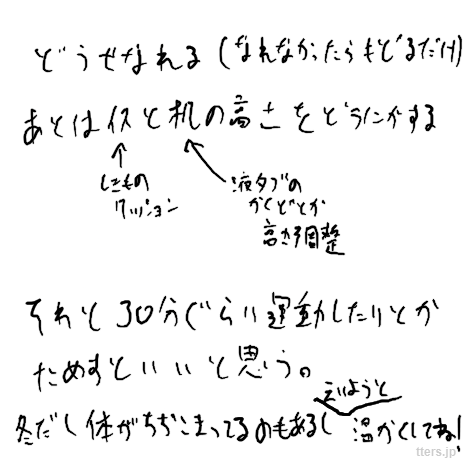 どうせなれる(なれなかったらもどるだけ)
あとはイスと机の高さをどうにかする
しきもの
クッション
液タブの
かくどとか
高さ調整
それと30分ぐらい運動したりとか
ためすといいと思う。
冬だし体がちぢこまってるのもあるし
えいようと
温かくしてね!
tters.jp